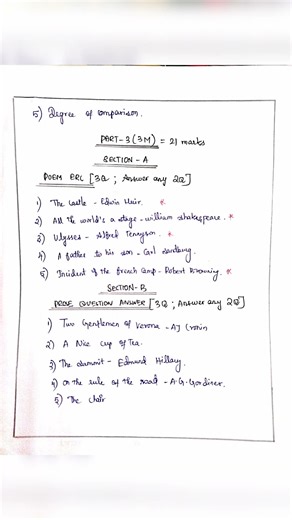 5) Degree of comparison.
PART-3 (3M) = 21 marks
SECTION - A
POEM ERC [3Q ; Answer any 2Q]
1) The Castle - Edwin Muir. *
2) All the world's a stage - william Shakespeare. *
3) Ulysses - Alfred Tennyson *
4) A father to his son - Carl Sandburg.
5) Incident of the french camp - Robert Browning. *
SECTION - B
PROSE QUESTION ANSWER [3Q ; Answer any 2Q]
1) Two Gentlemen of Verona - AJ Cronin
2) A Nice cup of Tea.
3) The summit - Edmund Hillary.
4) On the rule of the road - A.G. Gardiner.
5) The chair